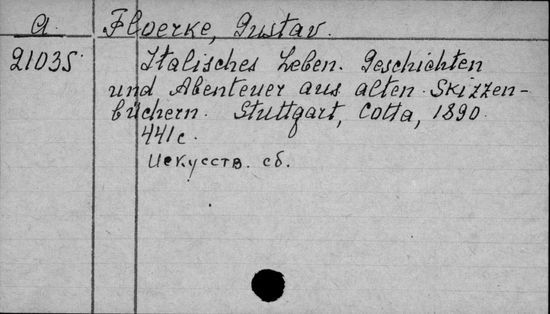 a. Floerke, Gustav.
21035. Italisches Leben. Geschichten
und Abenteuer aus alten Skizzen-
büchern. Stuttgart, Cotta, 1890.
441 с.
Искусств. сб.